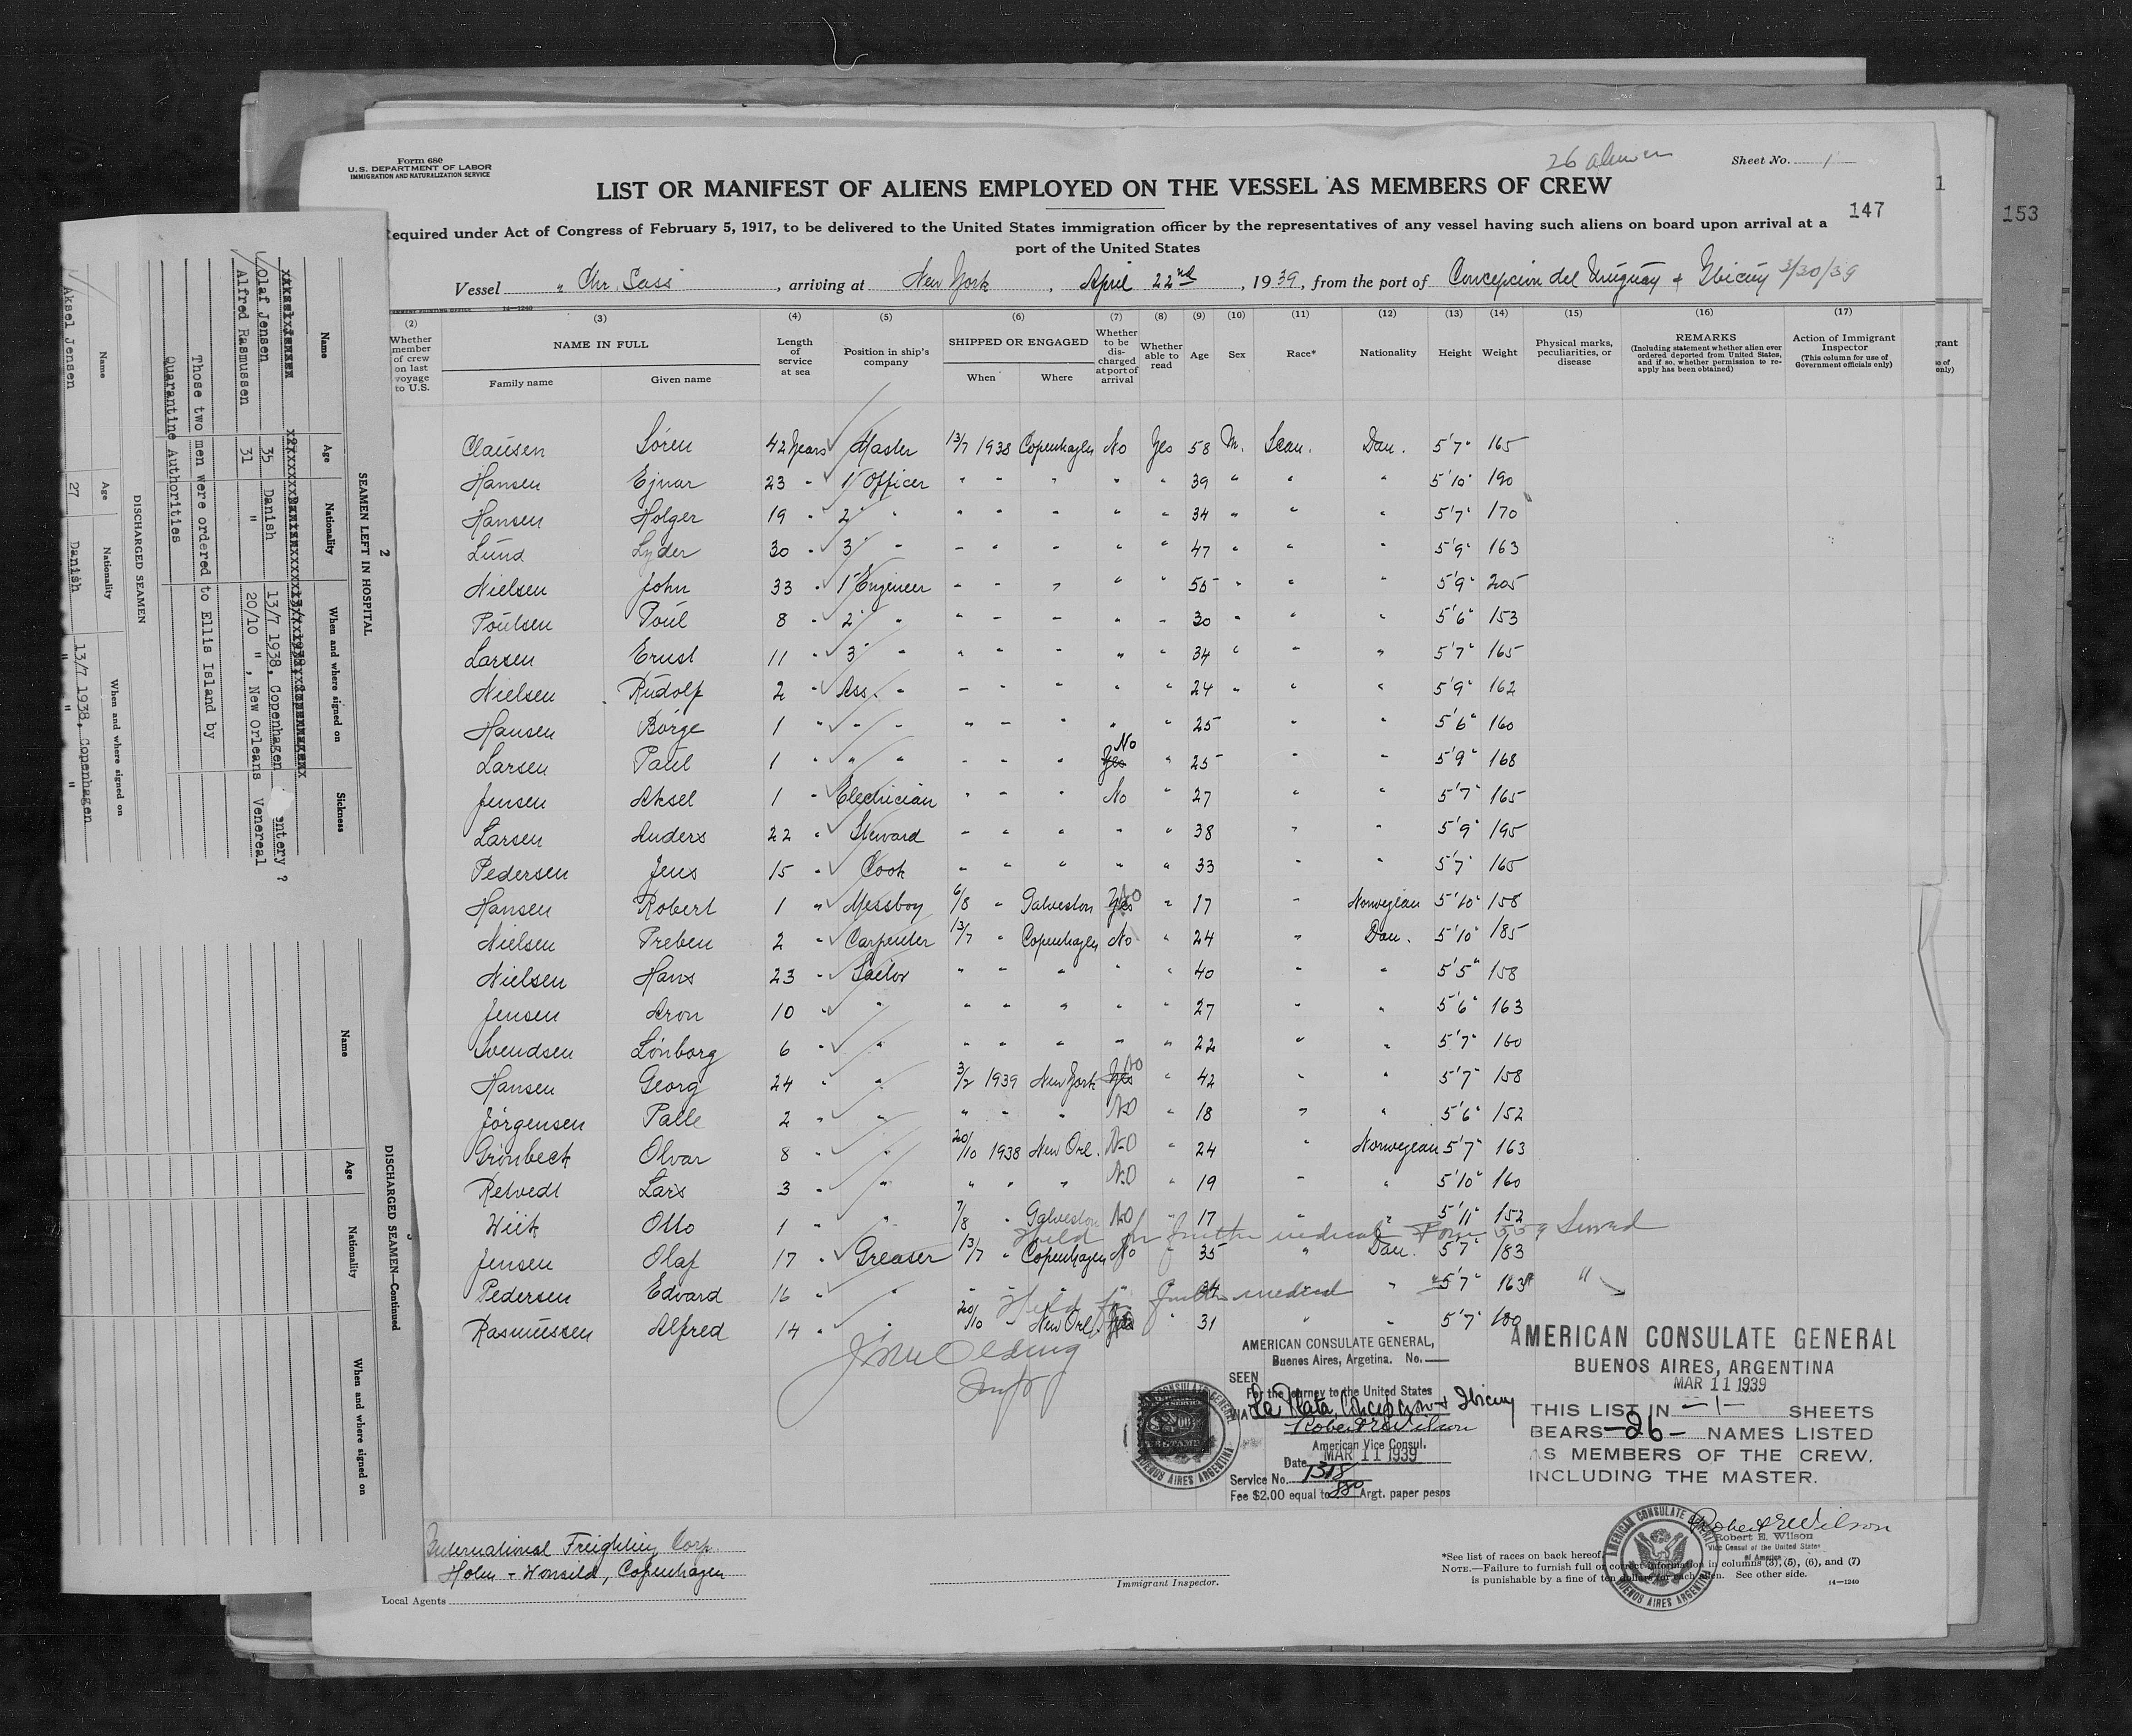 Form 680
U.S. DEPARTMENT OF LABOR
IMMIGRATION AND NATURALIZATION SERVICE
26 aliens
Sheet No. 1
LIST OR MANIFEST OF ALIENS EMPLOYED ON THE VESSEL AS MEMBERS OF CREW
147
1
153
equired under Act of Congress of February 5, 1917, to be delivered to the United States immigration officer by the representatives of any vessel having such aliens on board upon arrival at a
port of the United States
Vessel " Chr. Sass , arriving at New York , April 22nd , 1939, from the port of Concepcion del Uruguay & Ibicuy 3/30/39
14—1240
(2) (3) (4) (5) (6) (7) (8) (9) (10) (11) (12) (13) (14) (15) (16) (17)
Whether member of crew on last voyage to U.S.
NAME IN FULL
Family name Given name
Length of service at sea
Position in ship's company
SHIPPED OR ENGAGED
When Where
Whether to be discharged at port of arrival
Whether able to read
Age
Sex
Race*
Nationality
Height
Weight
Physical marks, peculiarities, or disease
REMARKS
(Including statement whether alien ever ordered deported from United States, and if so, whether permission to reapply has been obtained)
Action of Immigrant Inspector
(This column for use of Government officials only)
Clausen Sören 42 Years Master 13/7 1938 Copenhagen No Yes 58 M. Scan. Dan. 5'7" 165
Hansen Ejnar 23 " 1 Officer " " " " " 39 " " " 5'10" 190
Hansen Holger 19 " 2 " " " " " " " 34 " " " 5'7" 170
Lund Lyder 30 " 3 " " " " " " " 47 " " " 5'9" 163
Nielsen John 33 " 1 Engineer " " " " " 55 " " " 5'9" 205
Poulsen Poul 8 " 2 " " " " " " " 30 " " " 5'6" 153
Larsen Ernst 11 " 3 " " " " " " " 34 " " " 5'7" 165
Nielsen Rudolf 2 " Ass. " " " " " " 24 " " " 5'9" 162
Hansen Börge 1 " " " " " " " " 25 " " 5'6" 160
Larsen Paul 1 " " " " " " Yes No " 25 " " 5'9" 168
Jensen Aksel 1 " Electrician " " " No " 27 " " 5'7" 165
Larsen Anders 22 " Steward " " " " " 38 " " 5'9" 195
Pedersen Jens 15 " Cook " " " " " 33 " " 5'7" 165
Hansen Robert 1 " Messboy 6/8 " Galveston Yes No " 17 " Norwegian 5'10" 158
Nielsen Preben 2 " Carpenter 13/7 " Copenhagen No " 24 " Dan. 5'10" 185
Nielsen Hans 23 " Sailor " " " " " 40 " " 5'5" 158
Jensen Aron 10 " " " " " " " 27 " " 5'6" 163
Svendsen Lönborg 6 " " " " " " " 22 " " 5'7" 160
Hansen Georg 24 " " 3/2 1939 New York Yes No " 42 " " 5'7" 158
Jörgensen Palle 2 " " " " " No " 18 " " 5'6" 152
Grönbeck Olvar 8 " " 20/10 1938 New Orl. No " 24 " Norwegian 5'7" 163
Retvedt Lars 3 " " " " " No " 19 " " 5'10" 160
Wiik Otto 1 " " 7/8 " Galveston No " 17 " " 5'11" 152
Held for further medical Form 559 Served
Jensen Olaf 17 " Greaser 13/7 " Copenhagen No " 35 " Dan. 5'7" 183
Pedersen Edvard 16 " " " " " " " 34 " " 5'7" 163
Held for further medical "
Rasmussen Alfred 14 " " 20/10 " New Orl. Yes " 31 " " 5'7" 180
AMERICAN CONSULATE GENERAL,
Buenos Aires, Argetina. No.
SEEN
For the journey to the United States
VIA La Plata, Concepcion & Ibicuy
Robert E Wilson
American Vice Consul.
Date MAR 11 1939
Service No. 1318
Fee $2.00 equal to 880 Argt. paper pesos
AMERICAN CONSULATE GENERAL
BUENOS AIRES, ARGENTINA
MAR 11 1939
THIS LIST IN -1- SHEETS
BEARS -26- NAMES LISTED
AS MEMBERS OF THE CREW.
INCLUDING THE MASTER.
Robert E Wilson
Robert E. Wilson
Vice Consul of the United States
of America
AMERICAN CONSULATE GENERAL
BUENOS AIRES ARGENTINA
International Freighting Corp.
Holm - Wonsild, Copenhagen
Local Agents
Immigrant Inspector.
*See list of races on back hereof.
NOTE.—Failure to furnish full or correct information in columns (3), (5), (6), and (7)
is punishable by a fine of ten dollars for each alien. See other side.
14—1240
2
SEAMEN LEFT IN HOSPITAL
Name Age Nationality When and where signed on Sickness
Olaf Jensen 35 Danish 13/7 1938, Copenhagen entery ?
Alfred Rasmussen 31 " 20/10 " , New Orleans Venereal
Those two men were ordered to Ellis Island by
Quarantine Authorities
DISCHARGED SEAMEN
Name Age Nationality When and where signed on
Aksel Jensen 27 Danish 13/7 1938, Copenhagen
" "
DISCHARGED SEAMEN—Continued
Name Age Nationality When and where signed on